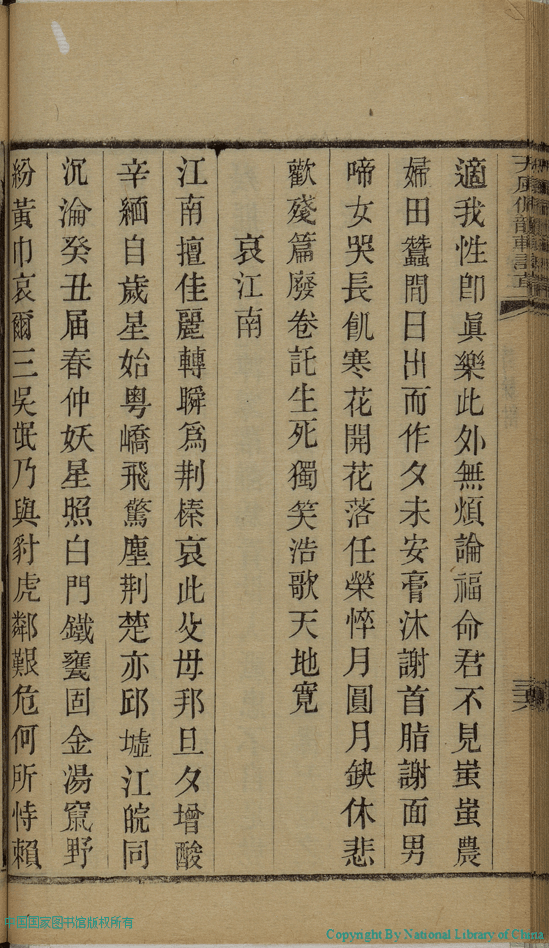 適我性卽眞樂此外無煩論福命君不見蚩蚩農
婦田蠶間日出而作夕未安膏沐謝首脂謝面男
啼女哭長飢寒花開花落任榮悴月圓月缺休悲
歡殘篇廢卷託生死獨笑浩歌天地寛
哀江南
江南擅佳麗轉瞬爲荆榛哀此父母邦旦夕增酸
辛緬自歲星始粤嶠飛驚塵荆楚亦邱墟江皖同
沉淪癸丑届春仲妖星照白門鐵甕固金湯竄野
紛黃巾哀爾三吳氓乃與豺虎鄰艱危何所恃賴
中国国家图书馆版权所有
Copyright By National Library of China